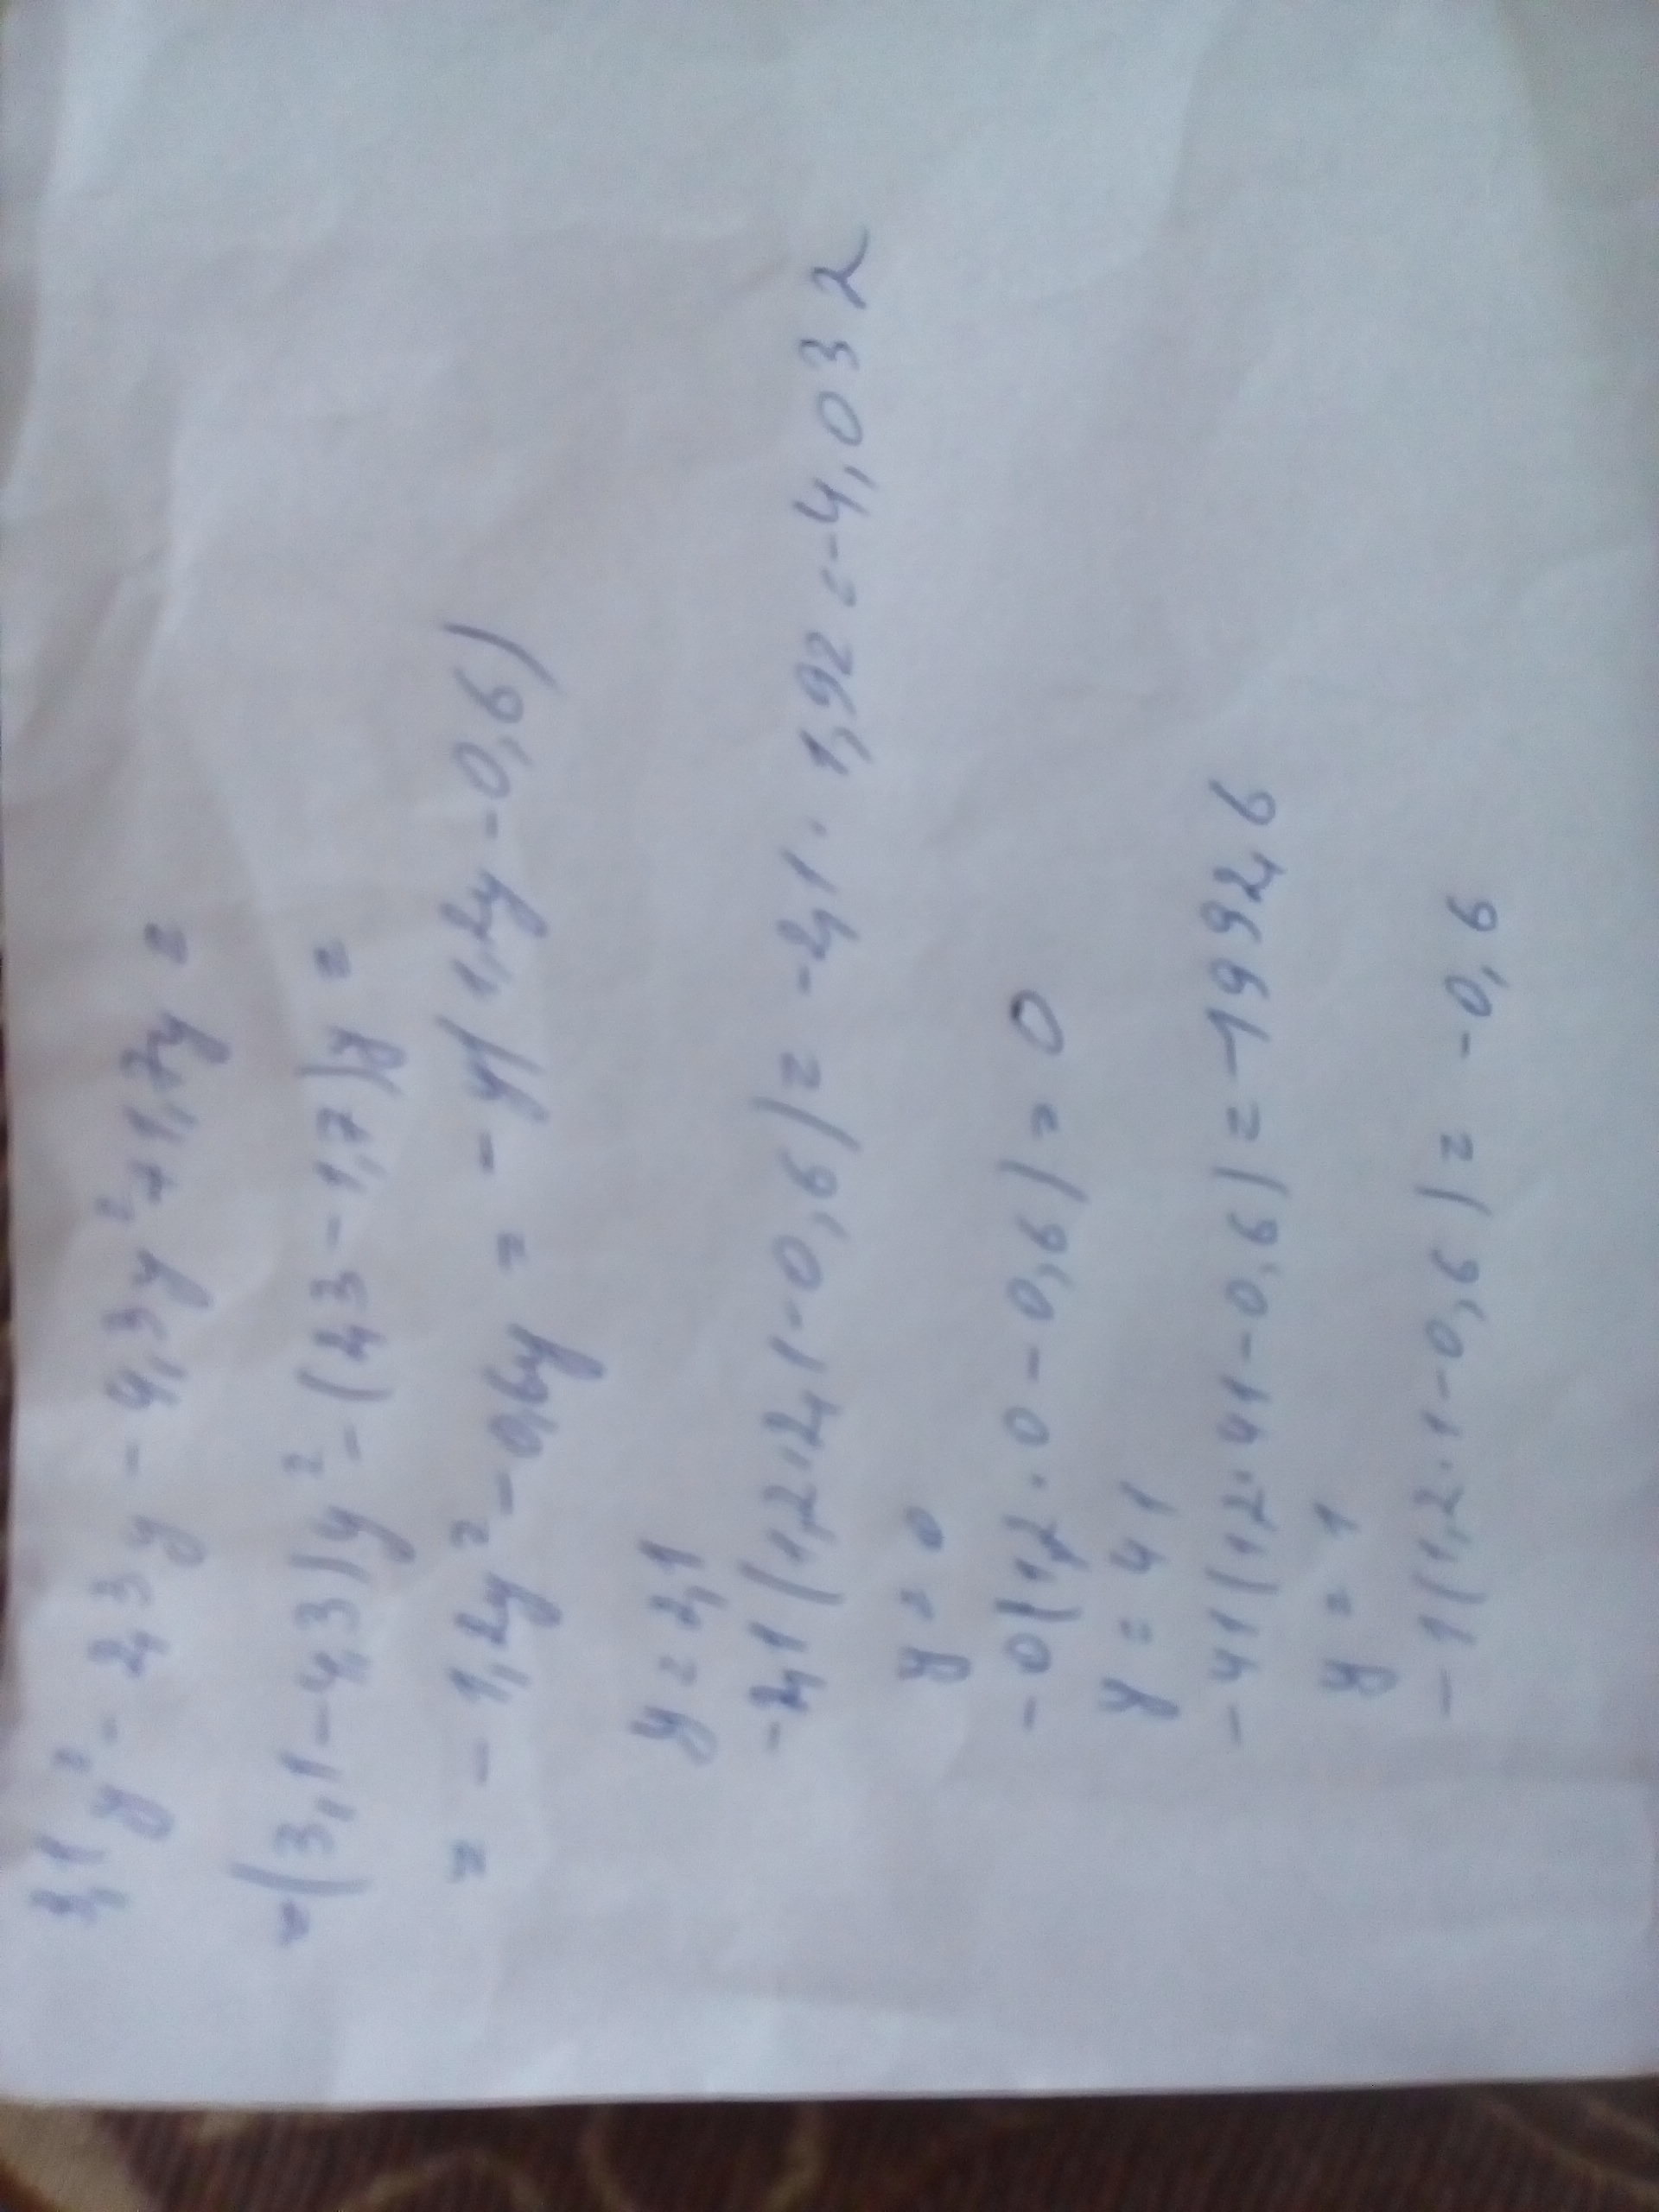 3,1y² - 2,3y - 4,3y² + 1,7y =
= (3,1 - 4,3)y² - (2,3 - 1,7)y =
= - 1,2y² - 0,6y = - y(1,2y - 0,6)
y = 2,1
-2,1(1,2·2,1 - 0,6) = -2,1 · 1,92 = -4,032
y = 0
-0(1,2·0 - 0,6) = 0
y = 41
-41(1,2·41 - 0,6) = -1992,6
y = 1
-1(1,2·1 - 0,6) = -0,6